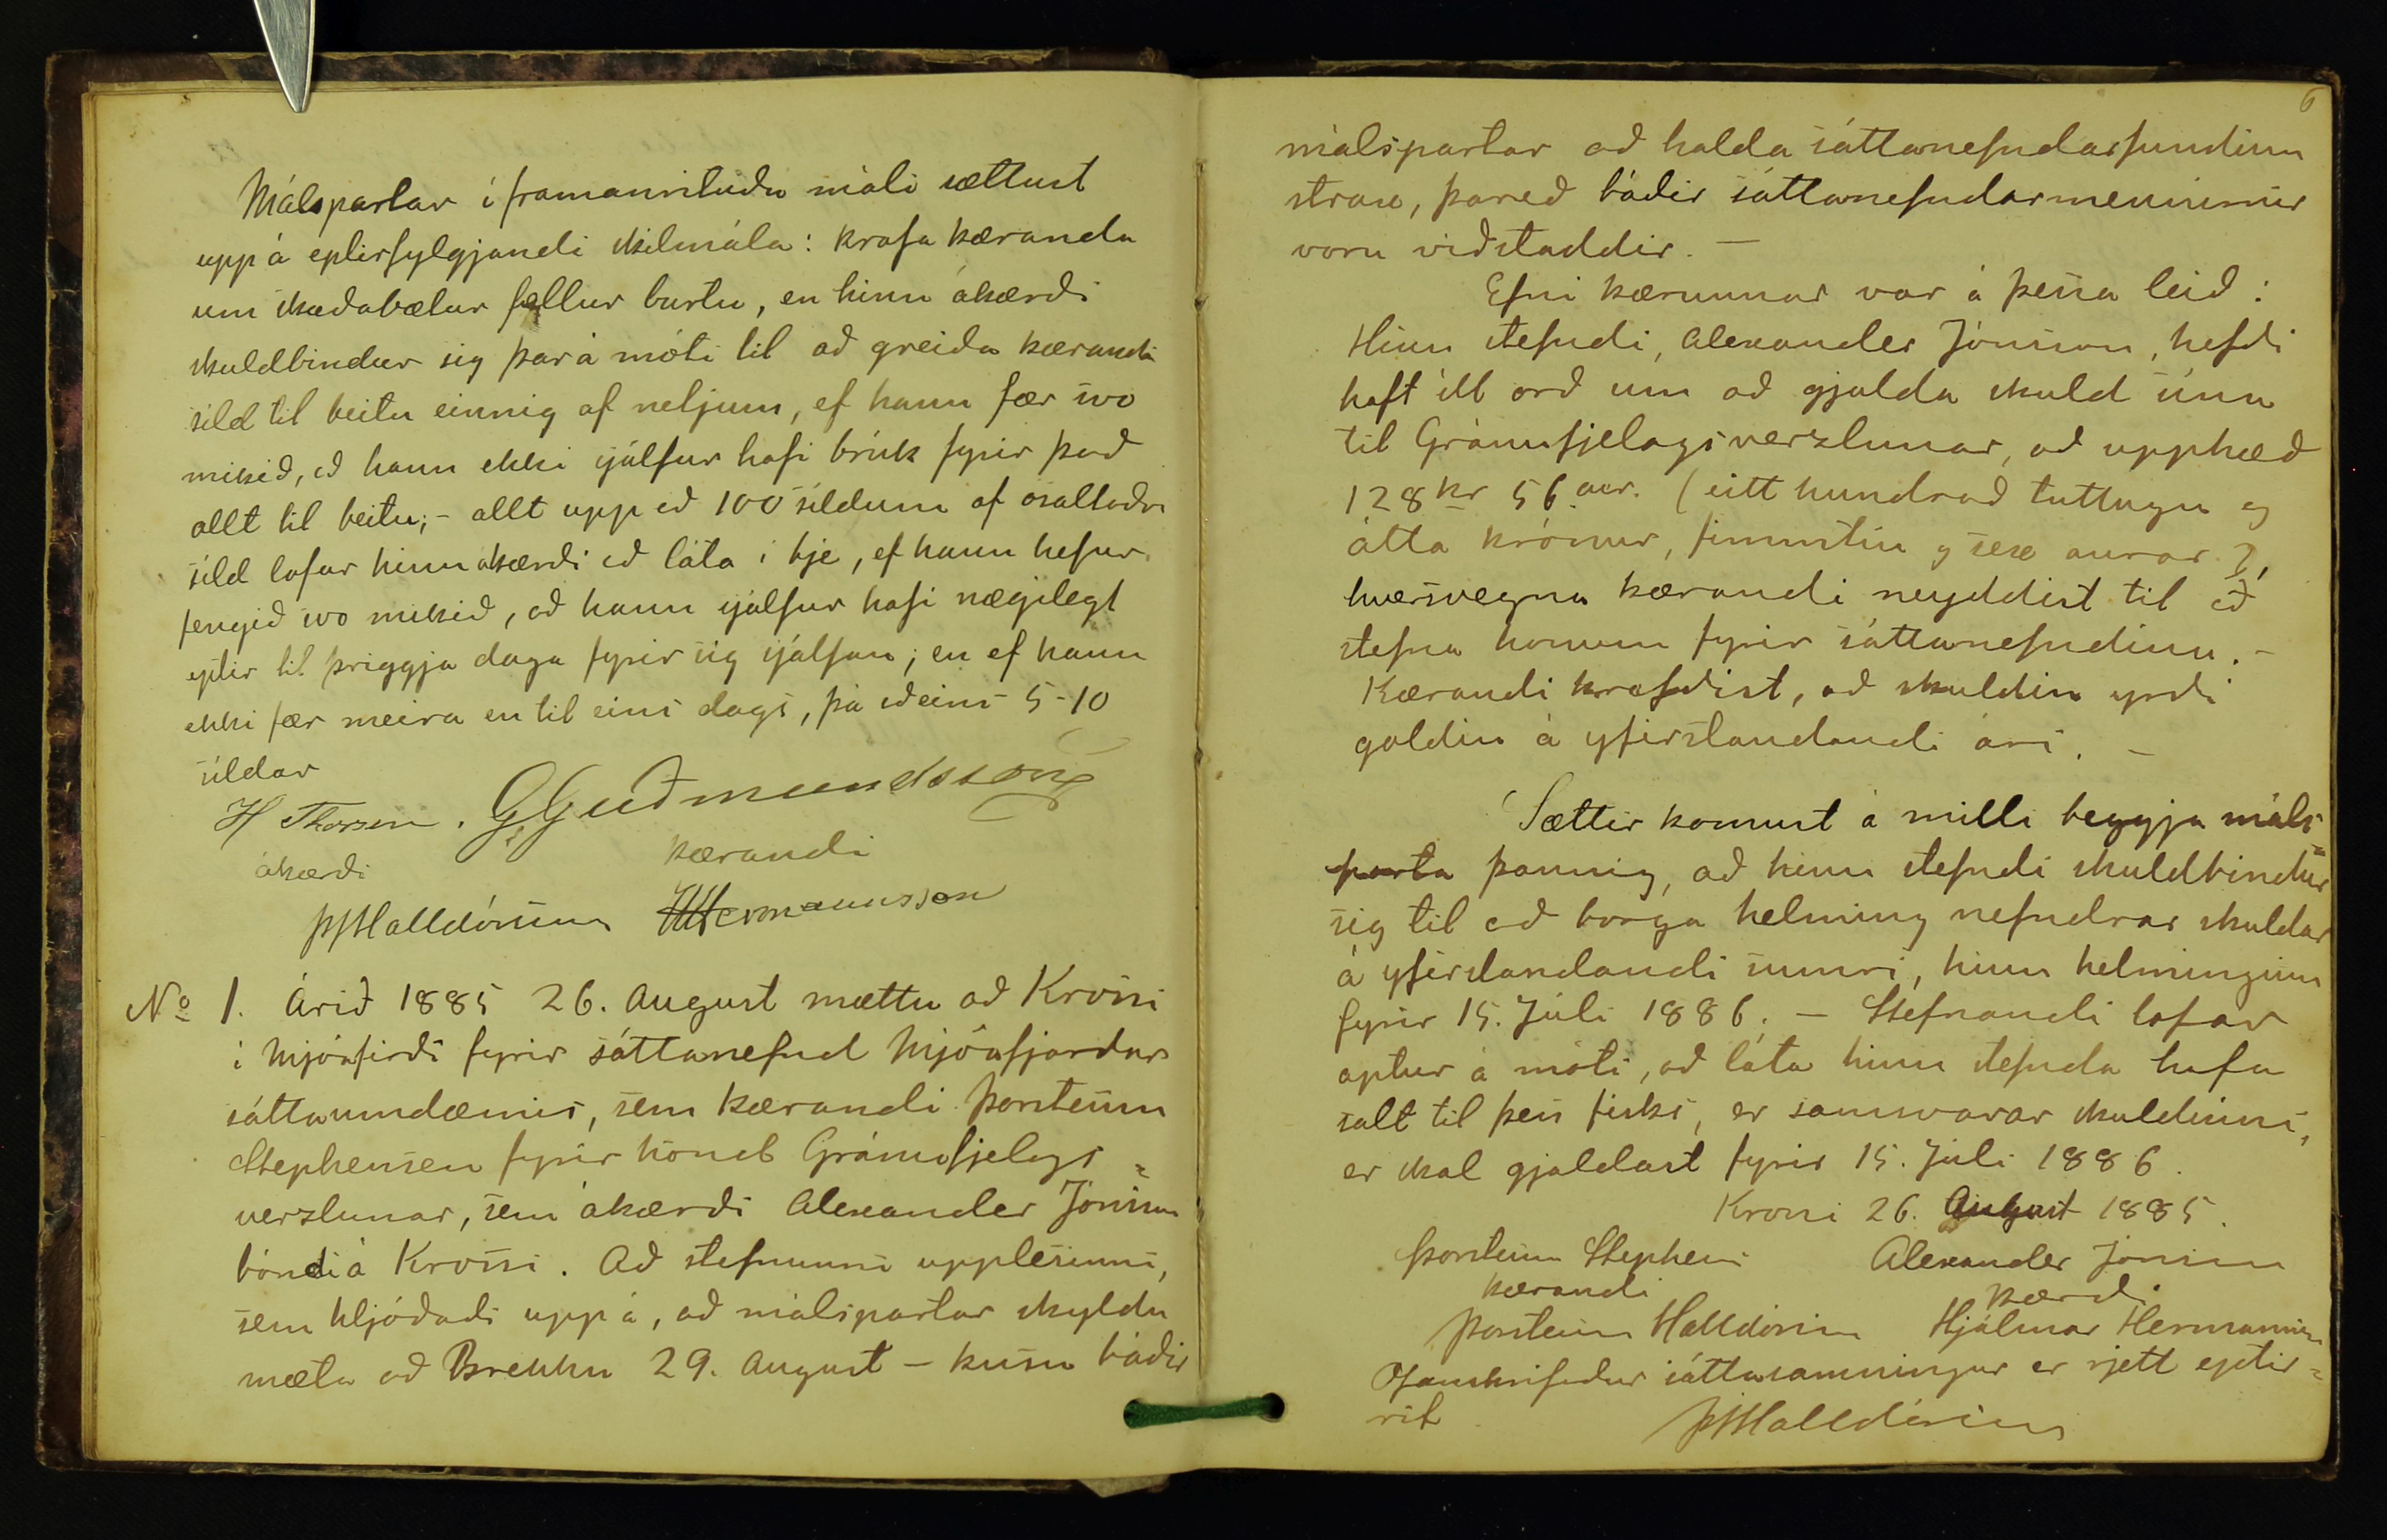 Málspartar í framanrituðu máli sættust
upp á eptirfylgjandi skilmála: krafa kæranda
um skaðabætur fellur burtu, en hinn ákærði
skuldbindur sig þar á móti til að greiða kæranda
síld til beitu einnig af netjum, ef hann fær svo
mikið, að hann ekki sjálfur hafi brúk fyrir það
allt til beitu; - allt upp að 100 síldum af ósaltaðri
síld lofar hinn ákærði að láta í tje, ef hann hefur
fengið svo mikið, að hann sjálfur hafi nægilegt
eptir til þriggja daga fyrir sig sjálfan; en ef hann
ekki fær meira en til eins dags, þá aðeins 5-10
síldar
H Thorsen. G Guðmundsson
ákærði kærandi
ÞJHalldórsson HHermannsson
No 1. Árið 1885 26. August mættu að Krossi
í Mjóafirði fyrir sáttanefnd Mjóafjarðar
sáttaumdæmis, sem kærandi Þorsteinn
Stephensen fyrir hönd Gránufjelags=
verzlunar, sem ákærði Alexander Jónsson
bóndi á Krossi. Að stefnunni upplesinni,
sem hljóðaði upp á, að málspartar skyldu
mæta að Brekku 29. August - kusu báðir
6
málspartar að halda sáttanefndarfundinn
strax, þareð báðir sáttanefndarmennirnir
voru viðstaddir. -
Efni kærunnar var á þessa leið:
Hinn stefndi, Alexander Jónsson, hefði
haft ill orð um að gjalda skuld sína
til Gránufjelagsverzlunar, að upphæð
128 kr 56 aur. (eitt hundrað tuttugu og
átta krónur, fimmtíu og sex aurar),
hversvegna kærandi neyddist til að
stefna honum fyrir sáttanefndina. -
Kærandi krafðist, að skuldin yrði
goldin á yfirstandandi ári. -
Sættir komust á milli beggja máls=
parta þannig, að hinn stefndi skuldbindur
sig til að borga helming nefndrar skuldar
á yfirstandandi sumri, hinn helminginn
fyrir 15. Júli 1886. - Stefnandi lofar
aptur á móti, að láta hinn stefnda hafa
salt til þess fisks, er samsvarar skuldinni,
er skal gjaldast fyrir 15. Júli 1886.
Krossi 26. August 1885.
Þorsteinn Stephens Alexander Jónsson
kærandi kærði
Þorsteinn Halldórsson Hjálmar Hermannsson
Ofanskrifaður sáttasamningur er rjett eptir=
rit
ÞJHalldórsson